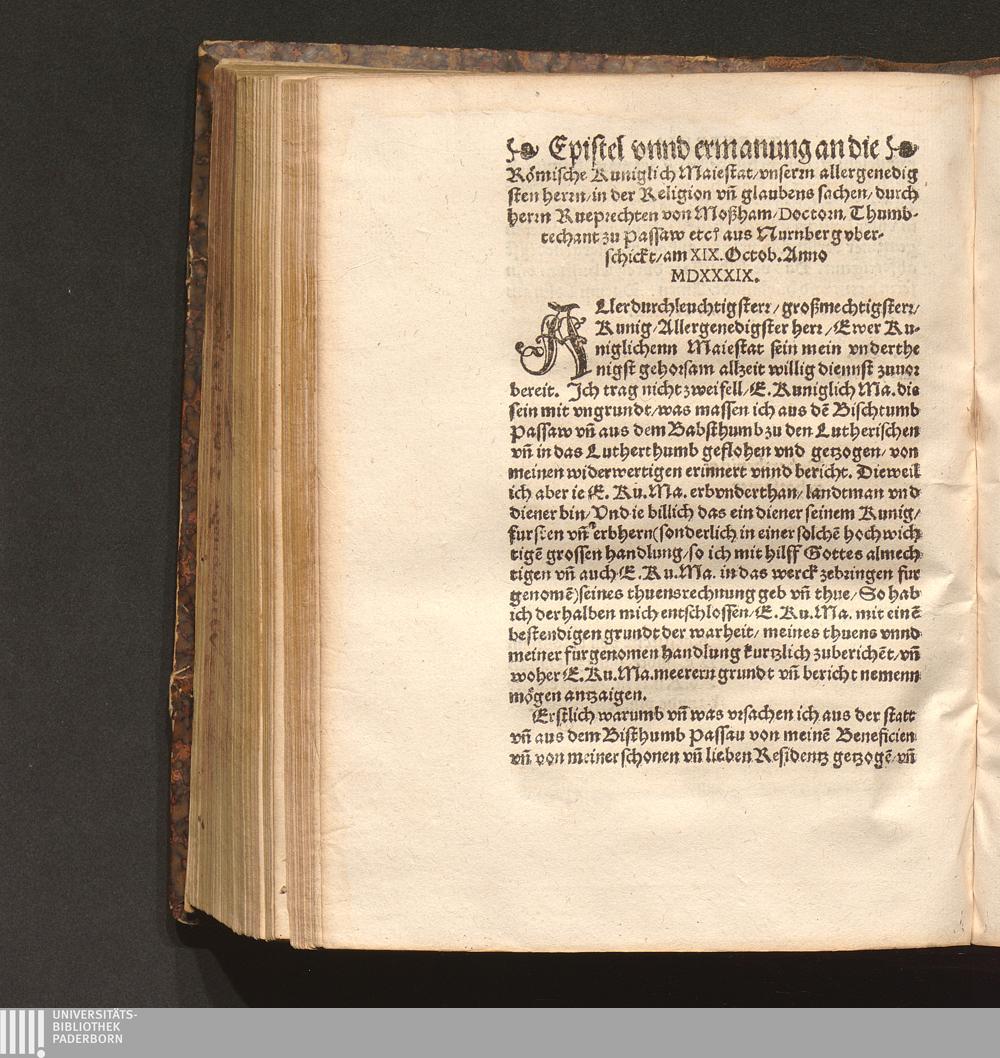 Epistel vnnd ermanung an die
Römische Kuniglich Maiestat/vnserm allergenedig
sten herrn/in der Religion vñ glaubens sachen/durch
herrn Rueprechten von Moßham/Doctorn, Thumb-
techant zu Passaw etc? aus Nurnberg vber-
schickt/am XIX. Octob. Anno
MDXXXIX.
ALlerdurchleuchtigsterr/großmechtigsterr/
Kunig/Allergenedigster herr/Ewer Ku-
niglichenn Maiestat sein mein vnderthe
nigst gehorsam allzeit willig diennst zuuor
bereit. Ich trag nicht zweifell/E. Kuniglich Ma. die
sein mit vngrundt/was massen ich aus dē Bischtumb
Passaw vñ aus dem Babsthumb zu den Lutherischen
vñ in das Lutherthumb geflohen vnd getzogen/von
meinen widerwertigen erinnert vnnd bericht. Dieweil
ich aber ie E. Ku. Ma. erbvnderthan/landtman vnd
diener bin/Vnd ie billich das ein diener seinem Kunig/
fursten vñ erbhern(sonderlich in einer solchē hochwich
tigē grossen handlung/so ich mit hilff Gottes almech
tigen vñ auch E. Ku. Ma. in das werck zebringen fur
genomē)seines thuensrechnung geb vñ thue/So hab
ich derhalben mich entschlossen/E. Ku. Ma. mit einē
bestendigen grundt der warheit/meines thuens vnnd
meiner furgenomen handlung kurtzlich zuberichēt/vñ
woher E. Ku. Ma. meerern grundt vñ bericht nemenn
mögen antzaigen.
Erstlich warumb vñ was vrsachen ich aus der statt
vñ aus dem Bisthumb Passau von meinē Beneficien
vñ von meiner schonen vñ lieben Residentz getzogē/vñ
UNIVERSITÄTS-
BIBLIOTHEK
PADERBORN